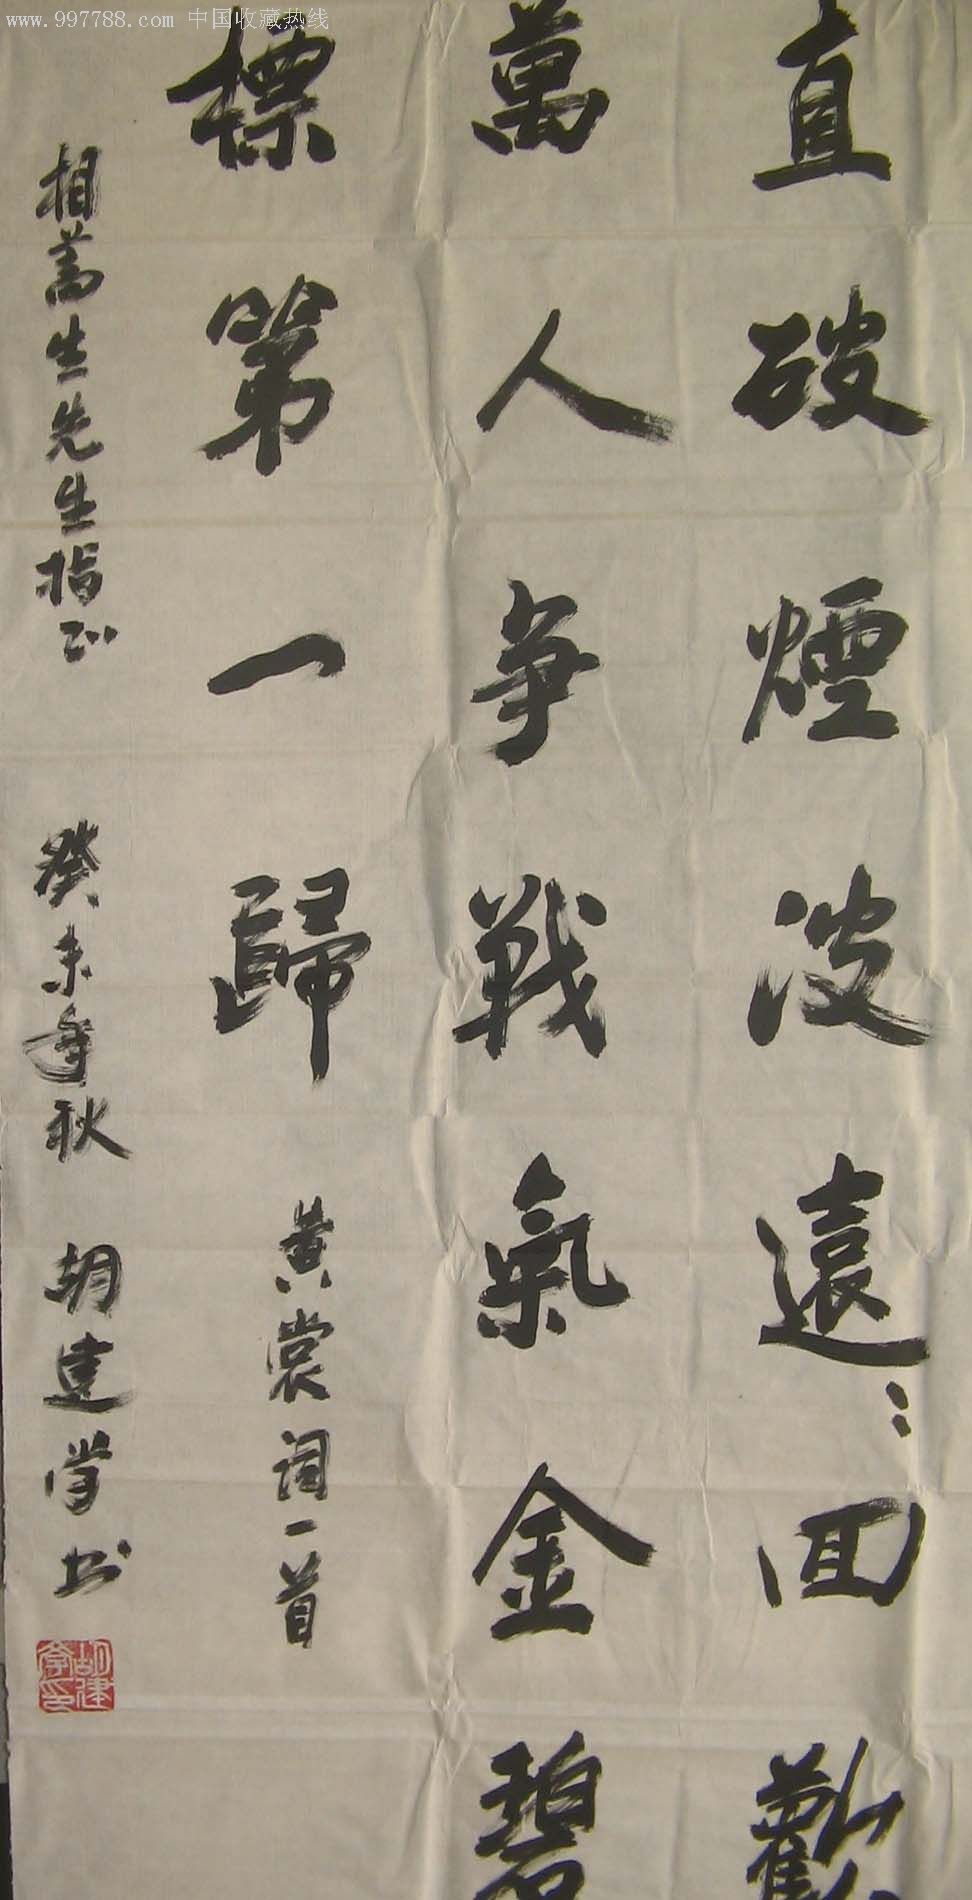 www.997788.com 中国收藏热线
直破煙波遠遠回歡
萬人争戰氣金碧
標第一歸
黄裳詞一首
相萬生先生指正
癸未年秋
胡建学书
胡建學印